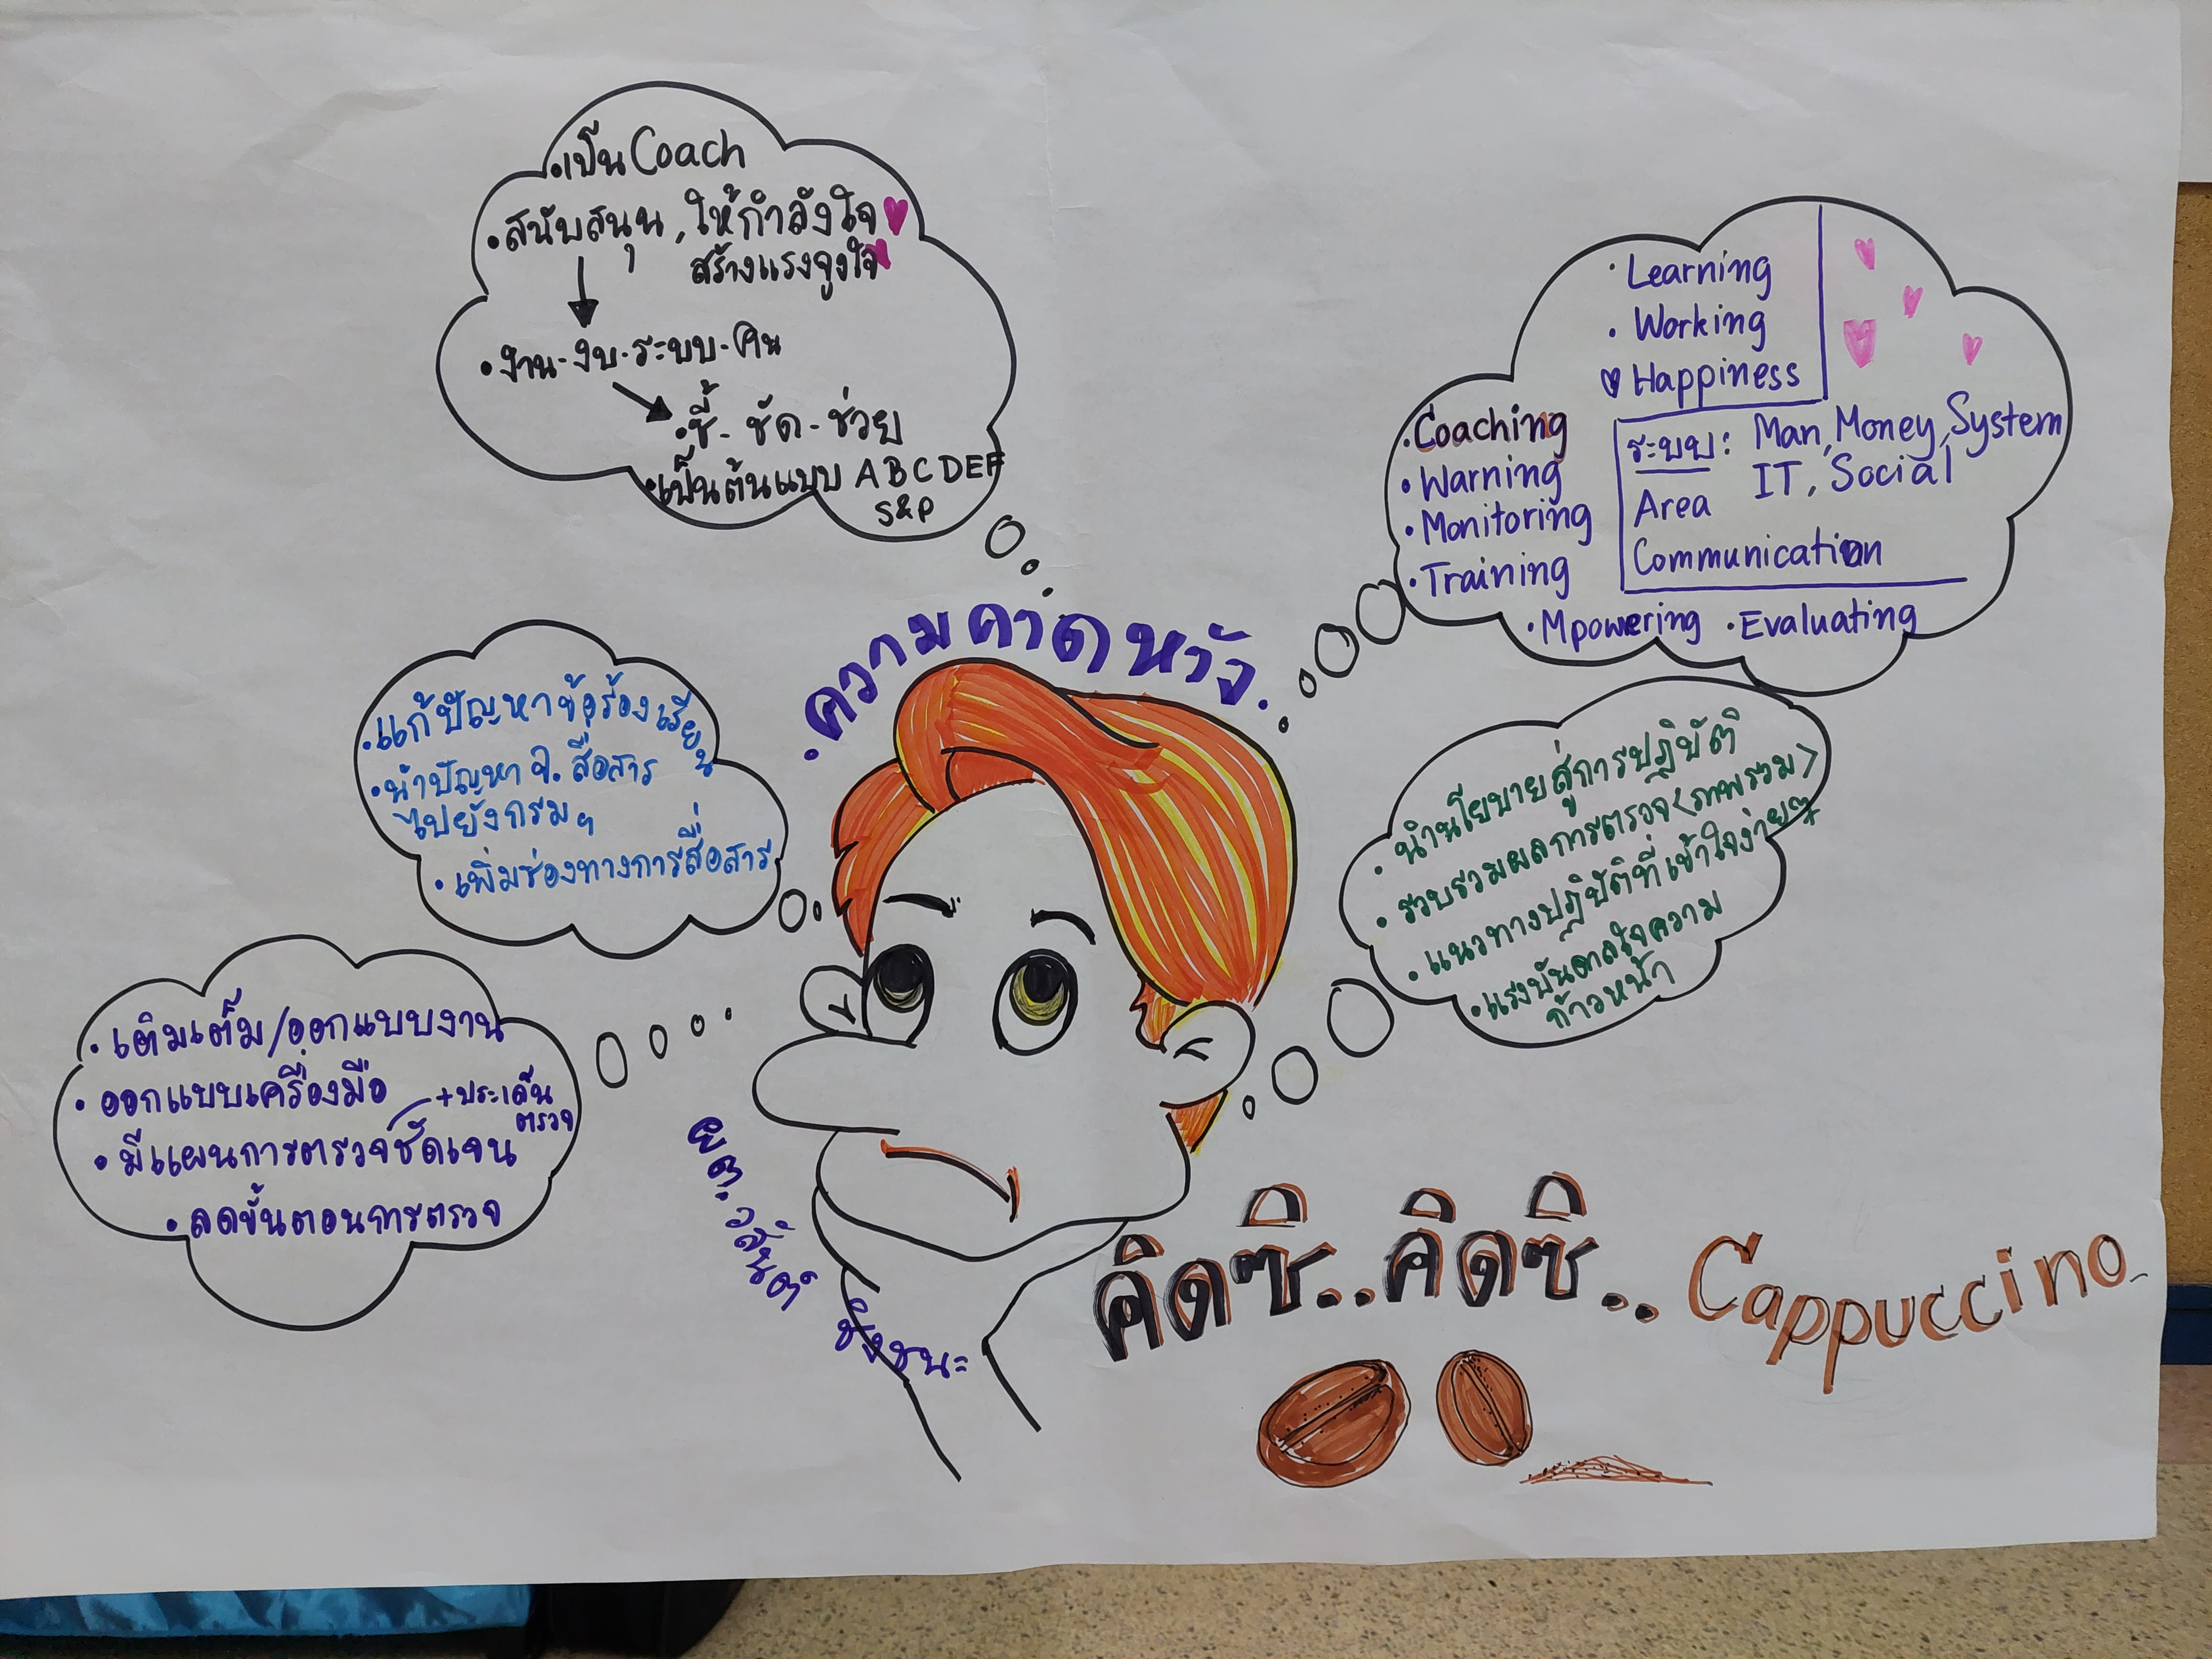 • เป็น Coach
• สนับสนุน, ให้กำลังใจ
สร้างแรงจูงใจ
• งาน-งบ-ระบบ-คน
• ชี้-ชัด-ช่วย
• เป็นต้นแบบ ABCDEF
S&P
• Learning
• Working
Happiness
• Coaching
• Warning
• Monitoring
• Training
ระบบ: Man, Money, System
IT, Social
Area
Communication
• Mpowering • Evaluating
• ความคาดหวัง..
• แก้ปัญหาข้อร้องเรียน
• นำปัญหา จ. สื่อสาร
ไปยังกรมฯ
• เพิ่มช่องทางการสื่อสาร
• นำนโยบายสู่การปฏิบัติ
• รวบรวมผลการตรวจ <ภาพรวม>
• แนวทางปฏิบัติที่เข้าใจง่ายๆ
• แรงบันดาลใจความ
ก้าวหน้า
• เติมเต็ม/ออกแบบงาน
• ออกแบบเครื่องมือ
+ประเด็น
ตรวจ
• มีแผนการตรวจชัดเจน
• ลดขั้นตอนการตรวจ
ผตก.วสันต์ ชิงชนะ
คิดซิ..คิดซิ..Cappuccino